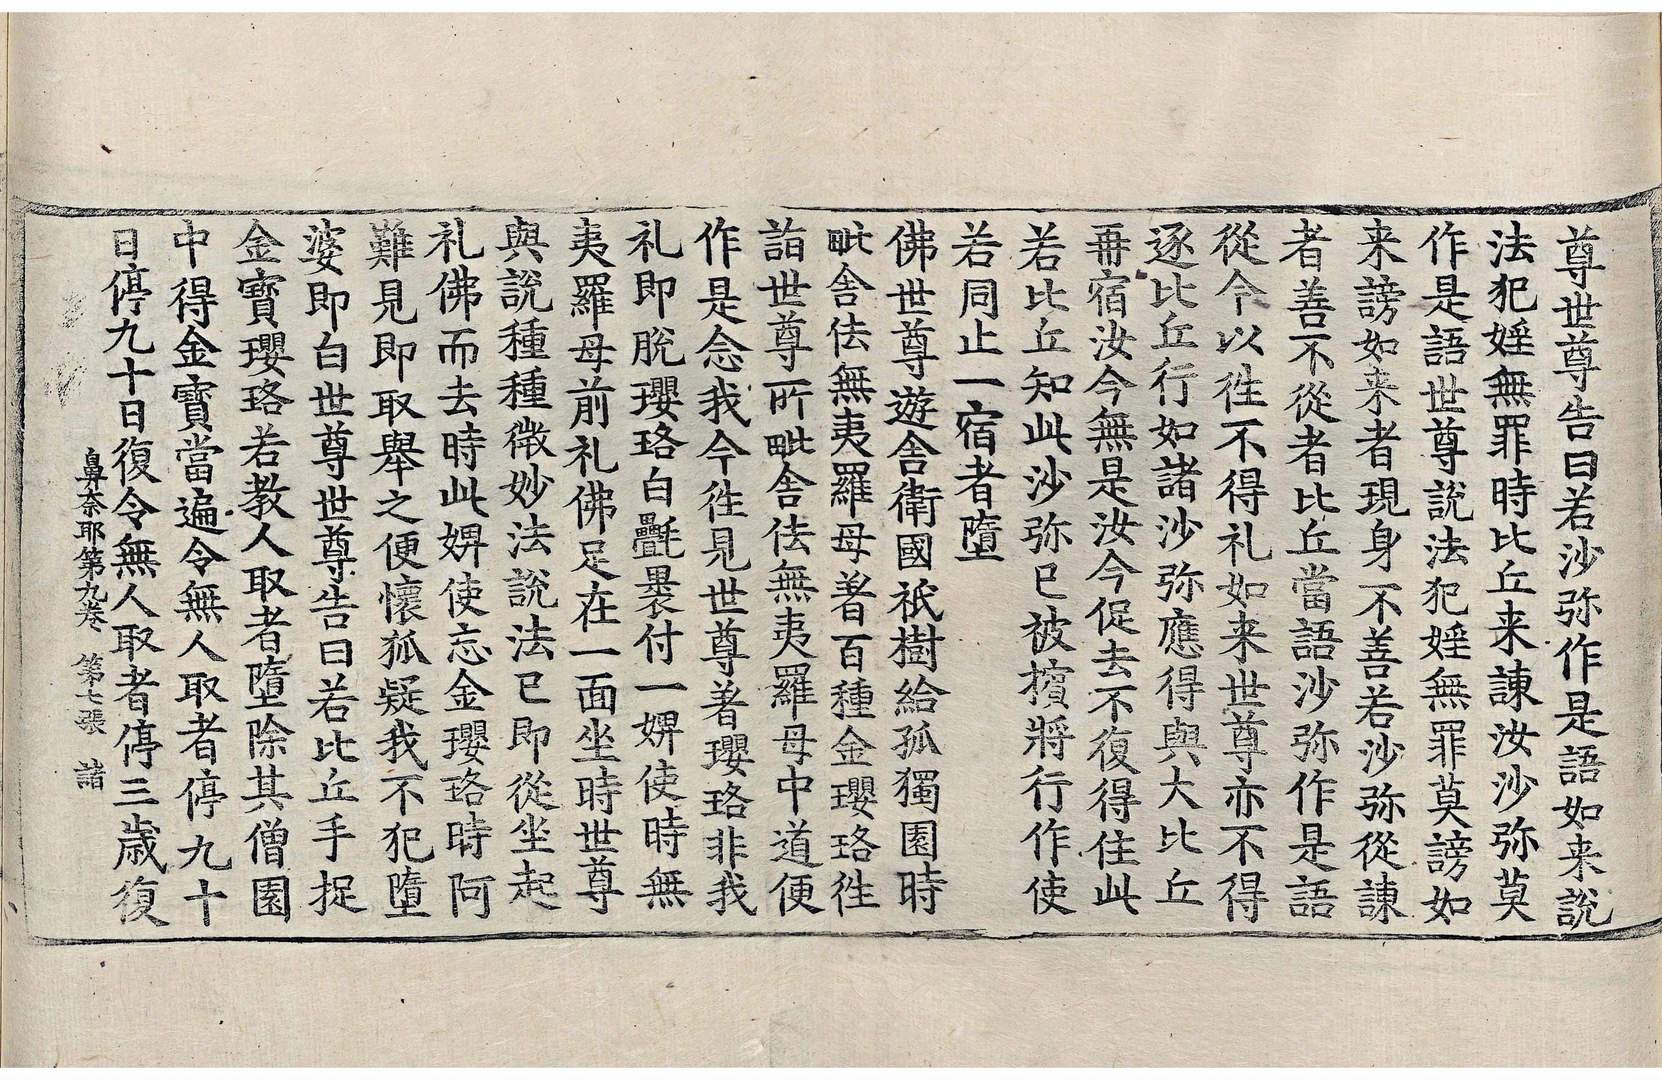 尊世尊告曰若沙弥作是語如来說
法犯婬無罪時比丘来諫汝沙弥莫
作是語世尊說法犯婬無罪莫謗如
来謗如来者現身不善若沙弥從諫
者善不從者比丘當語沙弥作是語
從今以徃不得礼如来世尊亦不得
逐比丘行如諸沙弥應得與大比丘
再宿汝今無是汝今促去不復得住此
若比丘知此沙弥已被擯將行作使
若同止一宿者墮
佛世尊遊舍衛國祇樹給孤獨園時
毗舍佉無夷羅母著百種金瓔珞徃
詣世尊所毗舍佉無夷羅母中道便
作是念我今徃見世尊著瓔珞非我
礼即脫瓔珞白㲲裹付一婢使時無
夷羅母前礼佛足在一面坐時世尊
與說種種微妙法說法已即從坐起
礼佛而去時此婢使忘金瓔珞時阿
難見即取舉之便懷狐疑我不犯墮
婆即白世尊世尊告曰若比丘手捉
金寶瓔珞若教人取者墮除其僧園
中得金寶當遍令無人取者停九十
日停九十日復令無人取者停三歲復
鼻奈耶第九卷 第七張 諸